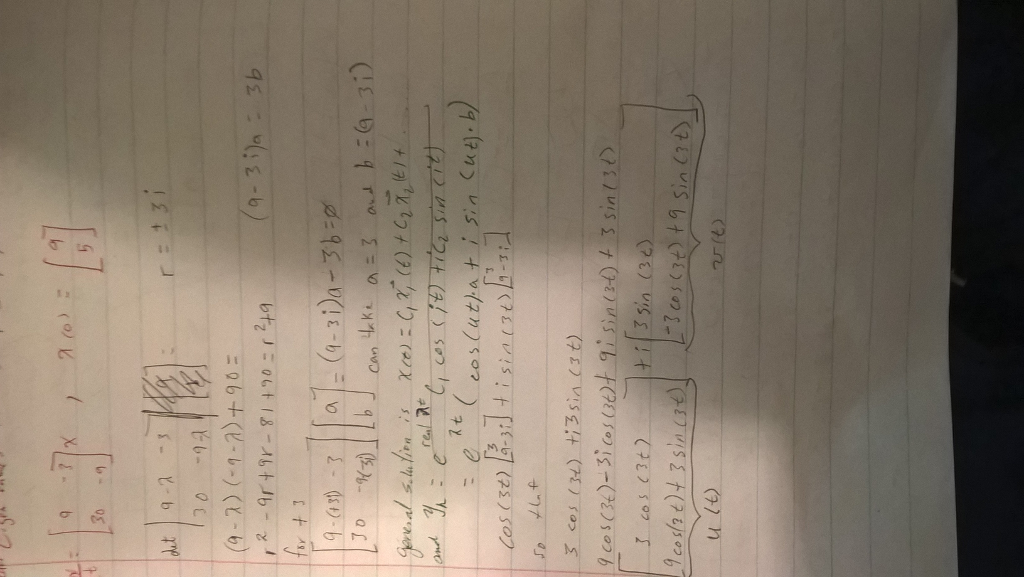 = [9 -3 30 -9] x , x(0) = [9 5]
det [9-λ -3 30 -9-λ] = r = ±3i
(9-λ)(-9-λ)+90 =
r² -9r+9r-81+90 = r²+9 (9-3i)a = 3b
for +3
[9-(+3i) -3 30 -9(-3i)] [a b] = (9-3i)a-3b=0
can take a=3 and b=(9-3i)
general solution is x(t) = C₁x₁(t) + C₂x₂(t)+...
and = e^real λt C₁ cos(it) + iC₂ sin(it)
= e^λt ( cos(ut)a + i sin(ut)·b)
cos(3t) [3 9-3i] + i sin(3t) [3 9-3i]
so that
3 cos(3t) + i3 sin(3t)
9 cos(3t)-3i cos(3t)+9i sin(3t) + 3 sin(3t)
[3 cos(3t) 9 cos(3t)+3 sin(3t)] + i [3 sin(3t) -3 cos(3t)+9 sin(3t)]
u(t) v(t)